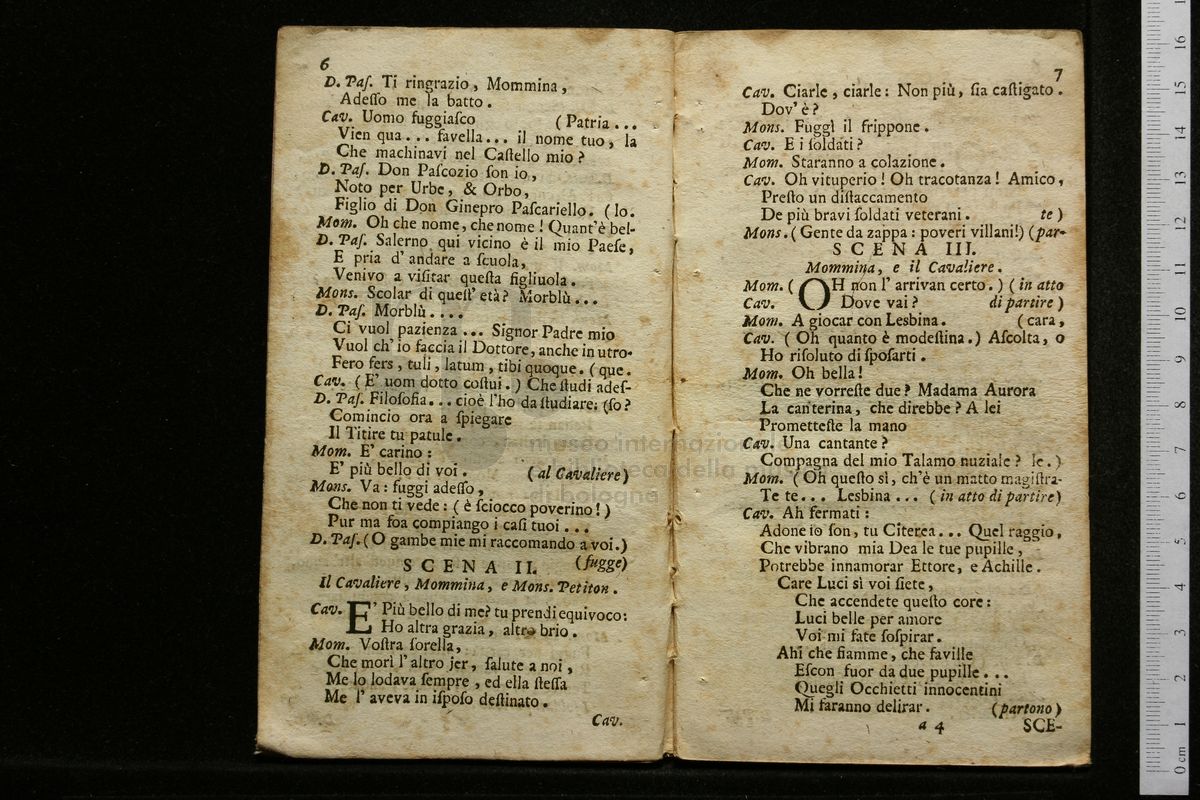 6
D. Paſ. Ti ringrazio, Mommina,
Adeſſo me la batto.
Cav. Uomo fuggiaſco (Patria ...
Vien qua... favella... il nome tuo, la
Che machinavi nel Caſtello mio?
D. Paſ. Don Paſcozio ſon io,
Noto per Urbe, & Orbo,
Figlio di Don Ginepro Paſcariello. (lo.
Mom. Oh che nome, che nome! Quant'è bel-
D. Paſ. Salerno qui vicino è il mio Paeſe,
E pria d'andare a ſcuola,
Venivo a viſitar queſta figliuola.
Mons. Scolar di queſt'età? Morblù...
D. Paſ. Morblù....
Ci vuol pazienza ... Signor Padre mio
Vuol ch'io faccia il Dottore, anche in utro-
Fero fers, tuli, latum, tibi quoque. (que.
Cav. (E' uom dotto coſtui.) Che ſtudi adeſ-
D. Paſ. Filoſofia... cioè l'ho da ſtudiare; (ſo?
Comincio ora a ſpiegare
Il Titire tu patule.
Mom. E' carino:
E' più bello di voi. (al Cavaliere)
Mons. Va: fuggi adeſſo,
Che non ti vede: (è ſciocco poverino!)
Pur ma foa compiango i caſi tuoi...
D. Paſ. (O gambe mie mi raccomando a voi.)
SCENA II. (fugge)
Il Cavaliere, Mommina, e Mons. Petiton.
Cav. E' Più bello di me? tu prendi equivoco:
Ho altra grazia, altro brio.
Mom. Voſtra ſorella,
Che morì l'altro jer, ſalute a noi,
Me lo lodava ſempre, ed ella ſteſſa
Me l'aveva in iſpoſo deſtinato.
Cav.
7
Cav. Ciarle, ciarle: Non più, ſia caſtigato.
Dov'è?
Mons. Fuggì il frippone.
Cav. E i ſoldati?
Mom. Staranno a colazione.
Cav. Oh vituperio! Oh tracotanza! Amico,
Preſto un diſtaccamento
De più bravi ſoldati veterani. te)
Mons. (Gente da zappa: poveri villani!) (par-
SCENA III.
Mommina, e il Cavaliere.
Mom. (OH non l'arrivan certo.) (in atto
Cav. Dove vai? di partire)
Mom. A giocar con Lesbina. (cara,
Cav. (Oh quanto è modeſtina.) Aſcolta, o
Ho riſoluto di ſpoſarti.
Mom. Oh bella!
Che ne vorreſte due? Madama Aurora
La canterina, che direbbe? A lei
Prometteſte la mano
Cav. Una cantante?
Compagna del mio Talamo nuziale? le.)
Mom. (Oh queſto sì, ch'è un matto magiſtra-
Te te... Lesbina... (in atto di partire)
Cav. Ah fermati:
Adone io ſon, tu Citerea... Quel raggio,
Che vibrano mia Dea le tue pupille,
Potrebbe innamorar Ettore, e Achille.
Care Luci sì voi ſiete,
Che accendete queſto core:
Luci belle per amore
Voi mi fate ſoſpirar.
Ahi che fiamme, che faville
Eſcon fuor da due pupille...
Quegli Occhietti innocentini
Mi faranno delirar. (partono)
a 4 SCE-